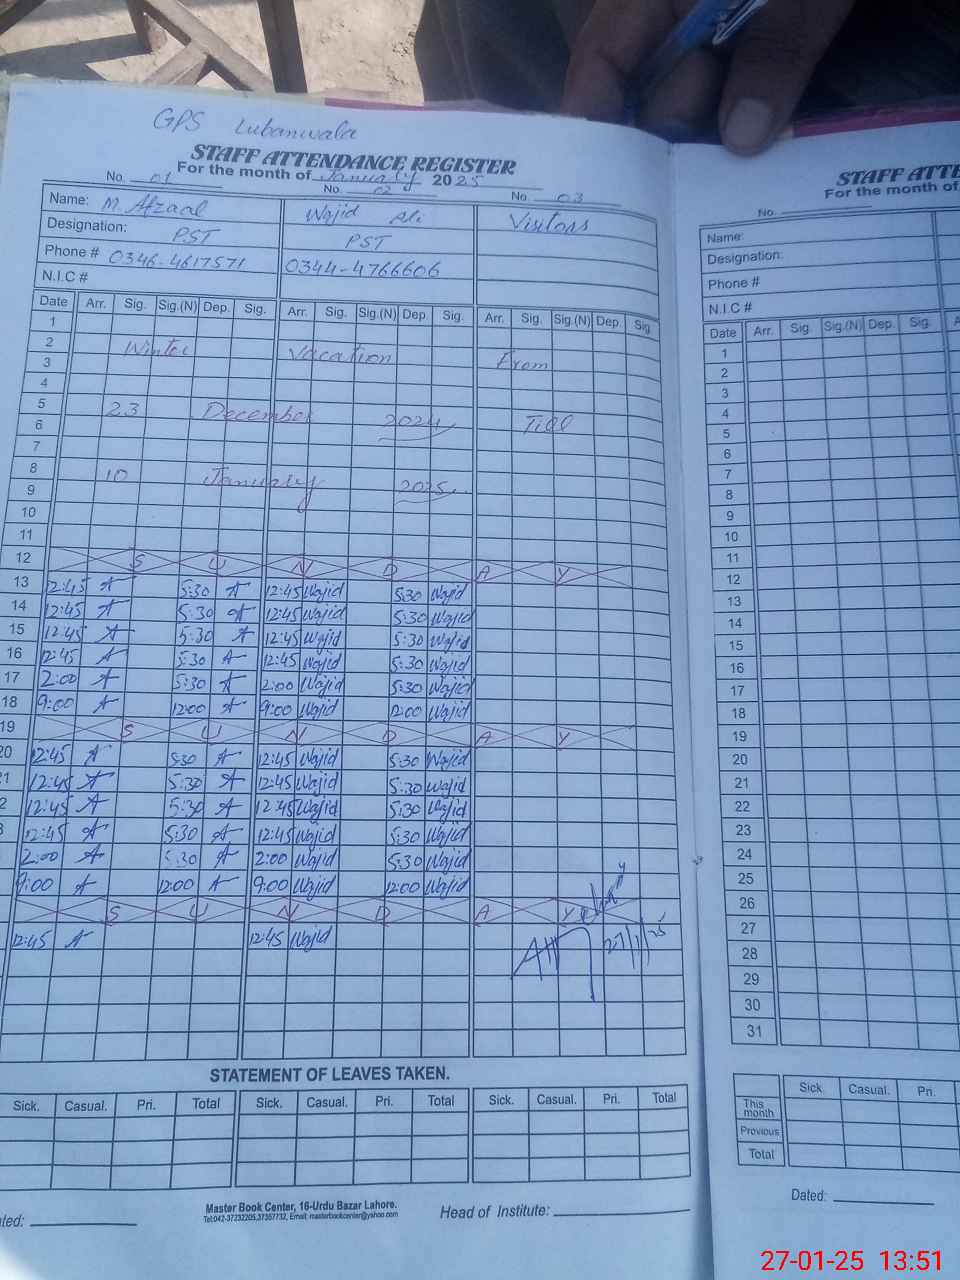 GPS Lubanwala
STAFF ATTENDANCE REGISTER
For the month of January 2025
No. 01 No. 02 No. 03
Name: M. Afzaal Wajid Ali Visitors
Designation: PST PST
Phone # 0346-4617571 0344-4766606
N.I.C #
Date Arr. Sig. Sig.(N) Dep. Sig. Arr. Sig. Sig.(N) Dep. Sig. Arr. Sig. Sig.(N) Dep. Sig
1
2 Winter Vacation From
3
4
5 23 December 2024 Till
6
7
8 10 January 2025
9
10
11
12 S U N D A Y
13 12:45 A 5:30 A 12:45 Wajid 5:30 Wajid
14 12:45 A 5:30 A 12:45 Wajid 5:30 Wajid
15 12:45 A 5:30 A 12:45 Wajid 5:30 Wajid
16 12:45 A 5:30 A 12:45 Wajid 5:30 Wajid
17 2:00 A 5:30 A 2:00 Wajid 5:30 Wajid
18 9:00 A 12:00 A 9:00 Wajid 12:00 Wajid
19 S U N D A Y
20 12:45 A 5:30 A 12:45 Wajid 5:30 Wajid
1 12:45 A 5:30 A 12:45 Wajid 5:30 Wajid
2 12:45 A 5:30 A 12:45 Wajid 5:30 Wajid
3 12:45 A 5:30 A 12:45 Wajid 5:30 Wajid
2:00 A 5:30 A 2:00 Wajid 5:30 Wajid
9:00 A 12:00 A 9:00 Wajid 12:00 Wajid
S U N D A Y
12:45 A 12:45 Wajid 27/1/25
STATEMENT OF LEAVES TAKEN.
Sick. Casual. Pri. Total Sick. Casual. Pri. Total Sick. Casual. Pri. Total
Master Book Center, 16-Urdu Bazar Lahore.
Tel:042-37232205,37357732, Email: masterbookcenter@yahoo.com
ated: Head of Institute:
STAFF ATTE
For the month of
No.
Name:
Designation:
Phone #
N.I.C #
Date Arr. Sig. Sig.(N) Dep. Sig. A
1
2
3
4
5
6
7
8
9
10
11
12
13
14
15
16
17
18
19
20
21
22
23
24
25
26
27
28
29
30
31
Sick. Casual. Pri.
This month
Previous
Total
Dated:
27-01-25 13:51